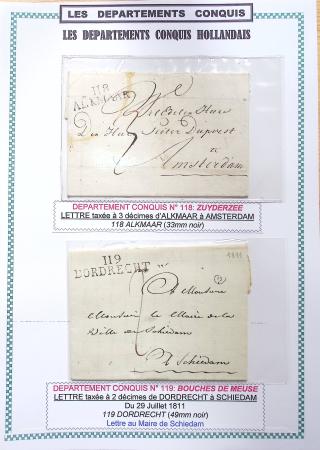 LES DEPARTEMENTS CONQUIS
LES DEPARTEMENTS CONQUIS HOLLANDAIS
118
ALKMAAR
Den Heer Pieter
te
Amsterdam
DEPARTEMENT CONQUIS N° 118: ZUYDERZEE
LETTRE taxée à 3 décimes d'ALKMAAR à AMSTERDAM
118 ALKMAAR (33mm noir)
119
DORDRECHT
1811
2
A Monsieur
Monsieur le Maire de la
Ville de Schiedam
A Schiedam
DEPARTEMENT CONQUIS N° 119: BOUCHES DE MEUSE
LETTRE taxée à 2 décimes de DORDRECHT à SCHIEDAM
Du 29 Juillet 1811
119 DORDRECHT (49mm noir)
Lettre au Maire de Schiedam